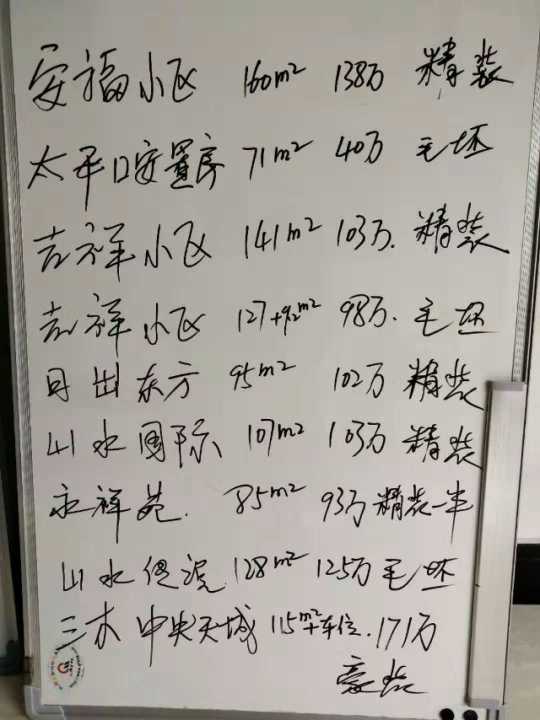 安福小区 160m² 138万 精装
太平口安置房 71m² 40万 毛坯
吉祥小区 141m² 103万. 精装
吉祥小区 127+92m² 98万. 毛坯
日出东方 95m² 102万 精装
山水国际 107m² 103万 精装
永祥苑. 85m² 93万 精装一半
山水 128m² 125万 毛坯
三木中央天域 115m²+车位. 171万
豪装